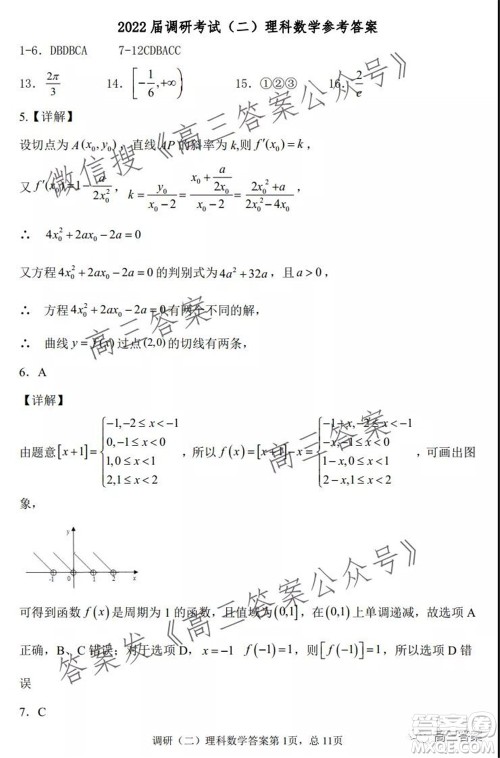 2022 届调研考试（二）理科数学参考答案
1-6．DBDBCA 7-12CDBACC
13．2π/3 14．[-1/6,+∞) 15．①②③ 16．2/e
5.【详解】
设切点为 A(x₀,y₀)，直线 AP 的斜率为 k,则 f′(x₀)=k，
又 f′(x₀)=1-a/(2x₀²)，k=y₀/(x₀-2)=(x₀+a/(2x₀))/(x₀-2)=(2x₀²+a)/(2x₀²-4x₀)
∴ 4x₀²+2ax₀-2a=0
又方程 4x₀²+2ax₀-2a=0 的判别式为 4a²+32a，且 a>0，
∴ 方程 4x₀²+2ax₀-2a=0 有两个不同的解，
∴ 曲线 y=f(x) 过点(2,0)的切线有两条，
6．A
【详解】
由题意[x+1]={-1,-2≤x<-1
0,-1≤x<0
1,0≤x<1
2,1≤x<2
，所以 f(x)=[x+1]-x={-1-x,-2≤x<-1
-x,-1≤x<0
1-x,0≤x<1
2-x,1≤x<2
，可画出图
象，
y
-1 0 1 2 x
可得到函数 f(x)是周期为 1 的函数，且值域为(0,1]，在(0,1)上单调递减，故选项 A
正确，B、C 错误；对于选项 D，x=-1 f(-1)=1，则[f(-1)]=1，所以选项 D 错
误
7．C
调研（二）理科数学答案第 1页，总 11页
微信搜《高三答案公众号》
高三答案
高三答案
答案发《高三答案公众号》
高三答案